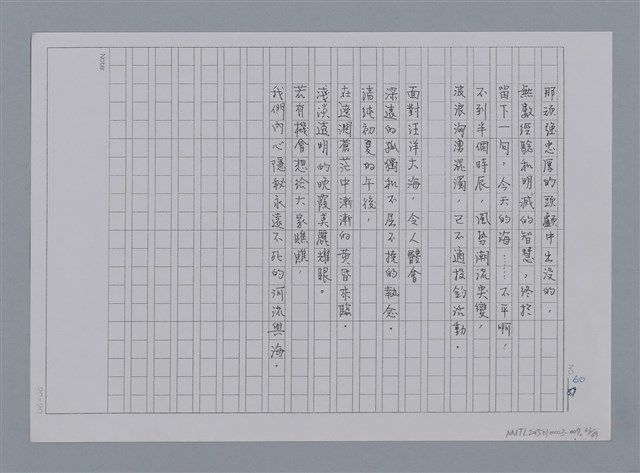 那頑強忠厚的頭顱中出沒的，
無數經驗和明滅的智慧，終於
留下一句，今天的海……不平啊，
不到半個時辰，風勢潮流突變，
波浪洶湧混濁，已不適投釣活動。
面對汪洋大海，令人體會
深遠的孤獨和不屈不撓的執念。
清純初夏的午後，
在遼濶蒼茫中漸漸的黃昏來臨。
淺淡透明的晚霞美麗耀眼。
若有機會想給大家瞧瞧，
我們內心隱秘永遠不死的河流與海。
Note
60